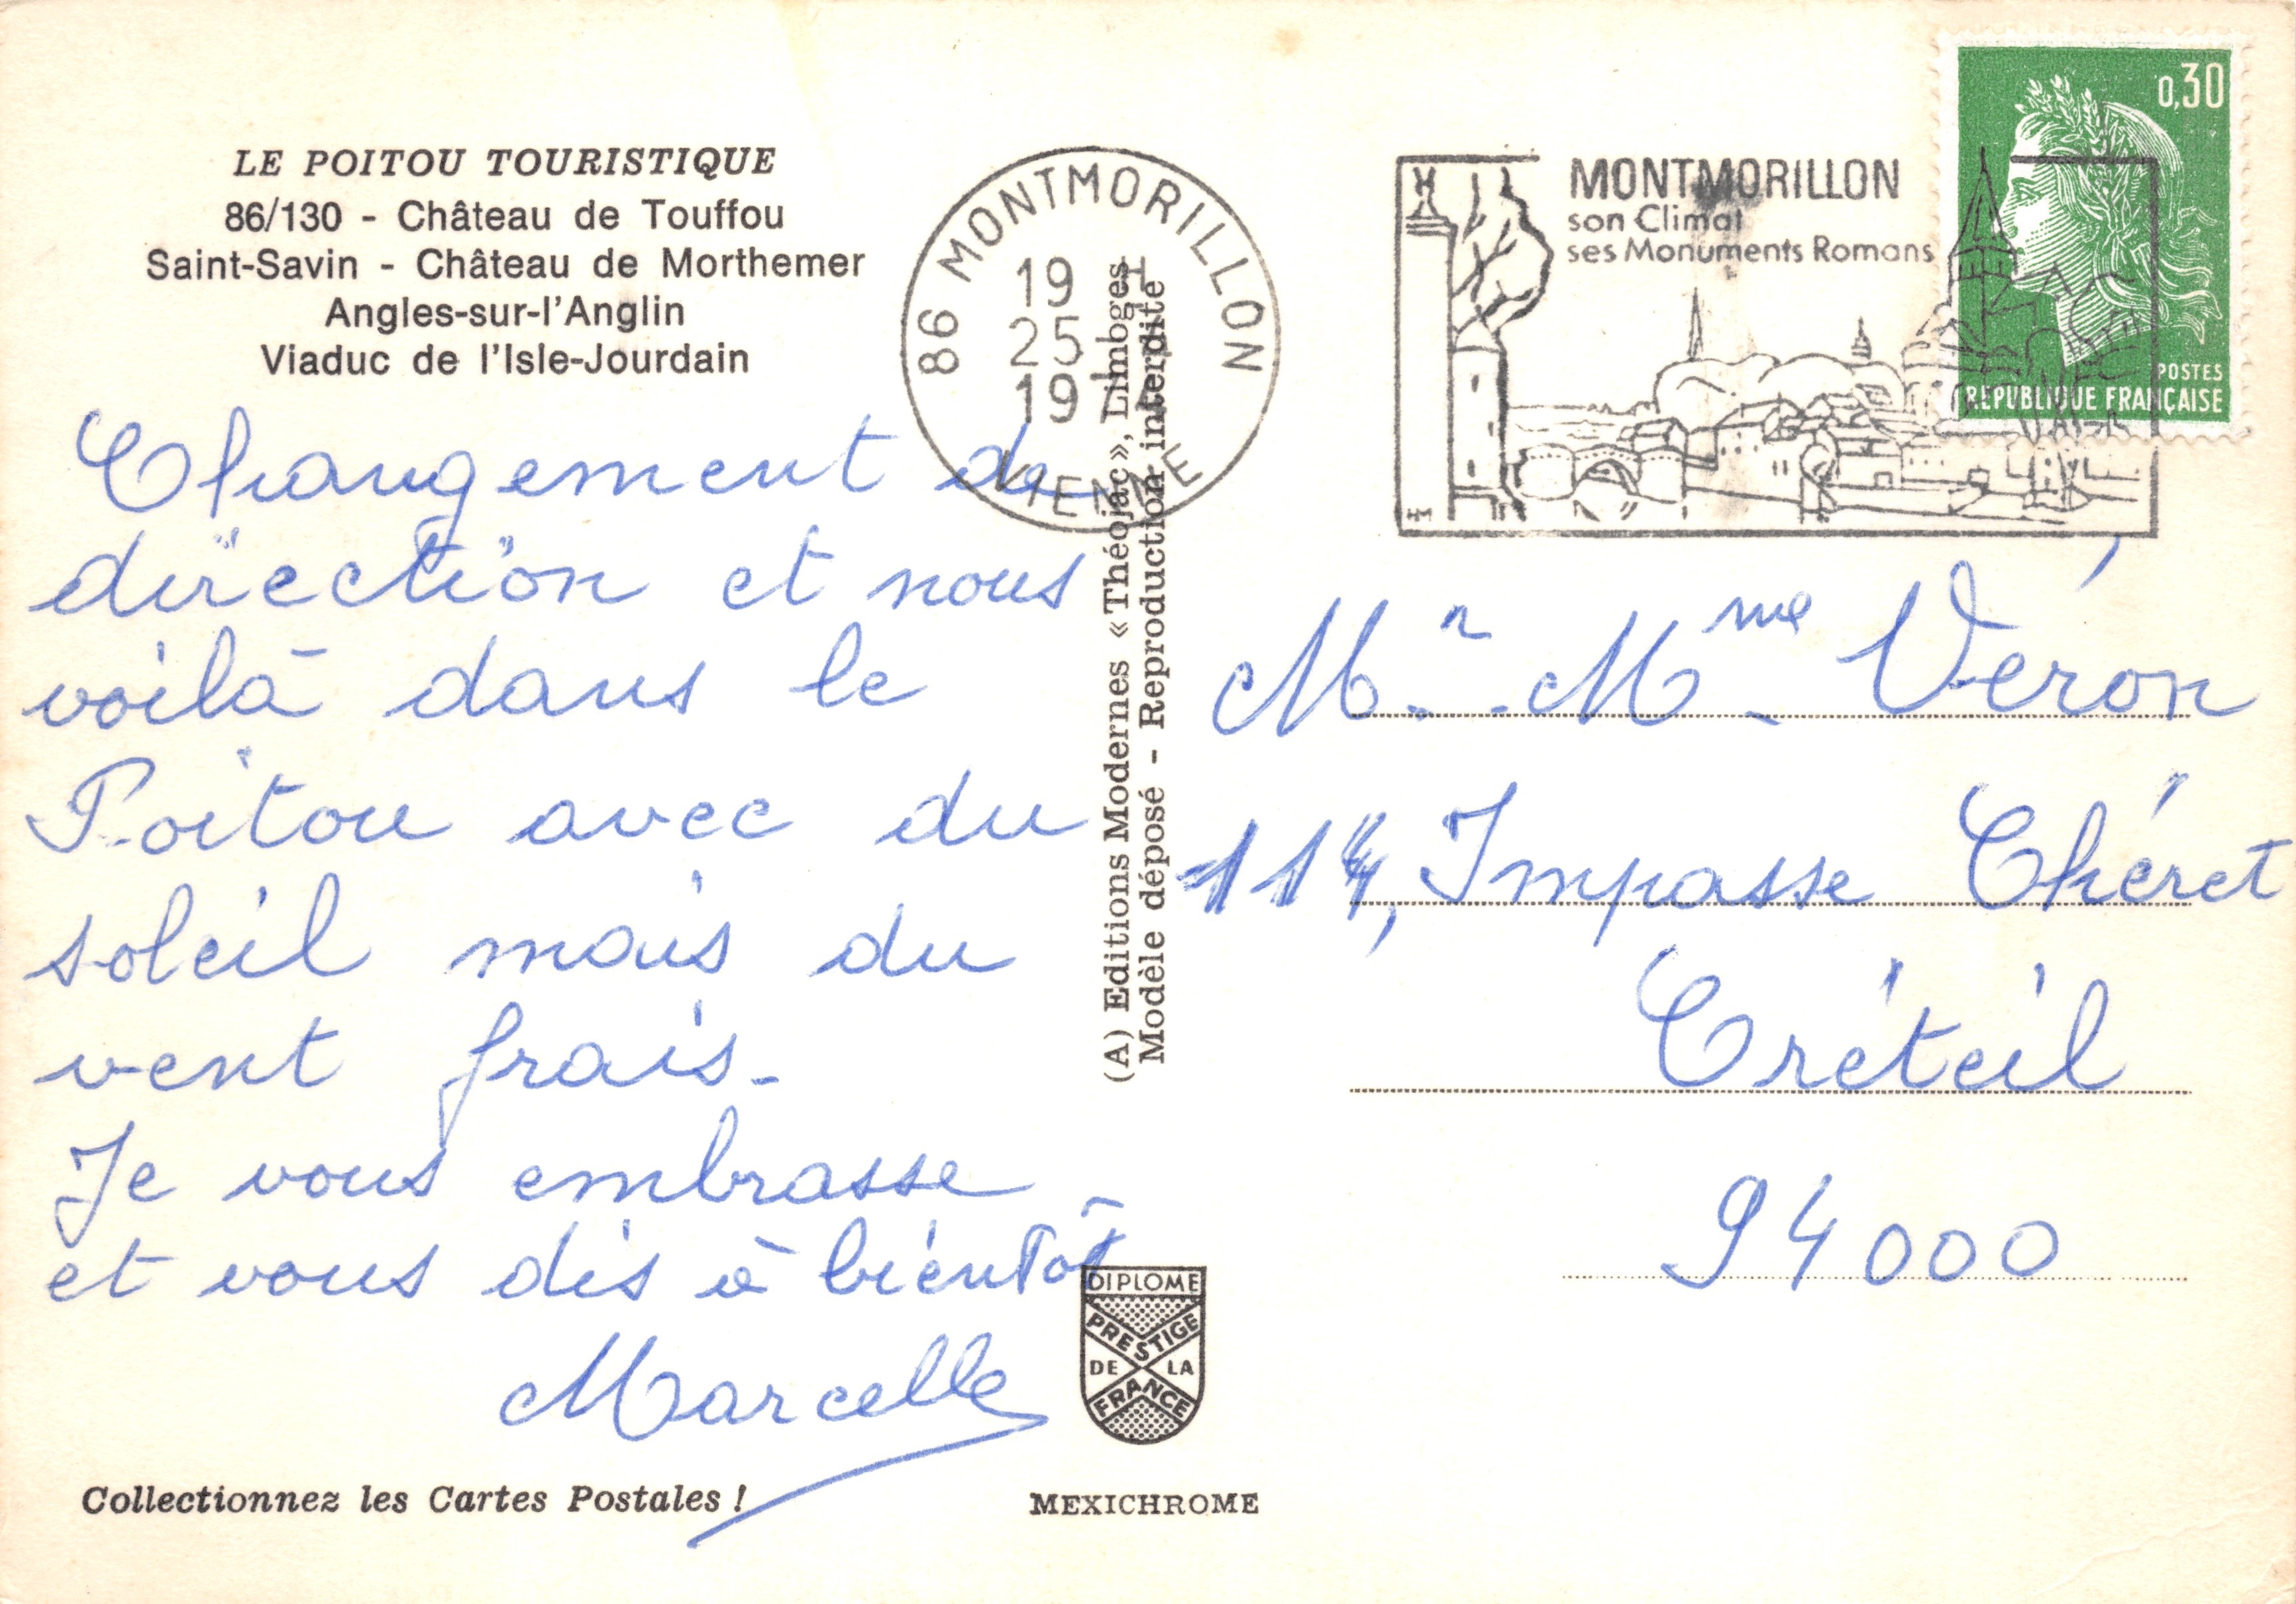 LE POITOU TOURISTIQUE
86/130 - Château de Touffou
Saint-Savin - Château de Morthemer
Angles-sur-l'Anglin
Viaduc de l'Isle-Jourdain
Changement de
direction et nous
voilà dans le
Poitou avec du
soleil mais du
vent frais.
Je vous embrasse
et vous dis à bientôt
Marcelle
Collectionnez les Cartes Postales !
86 MONTMORILLON
19 H
25
197
VIENNE
(A) Editions Modernes « Théojac », Limoges
Modèle déposé - Reproduction interdite
DIPLOME
PRESTIGE
DE LA
FRANCE
MEXICHROME
MONTMORILLON
son Climat
ses Monuments Romans
HM
0,30
POSTES
REPUBLIQUE FRANÇAISE
Mr. Mme Véron
Impasse Chéret
Créteil
94000